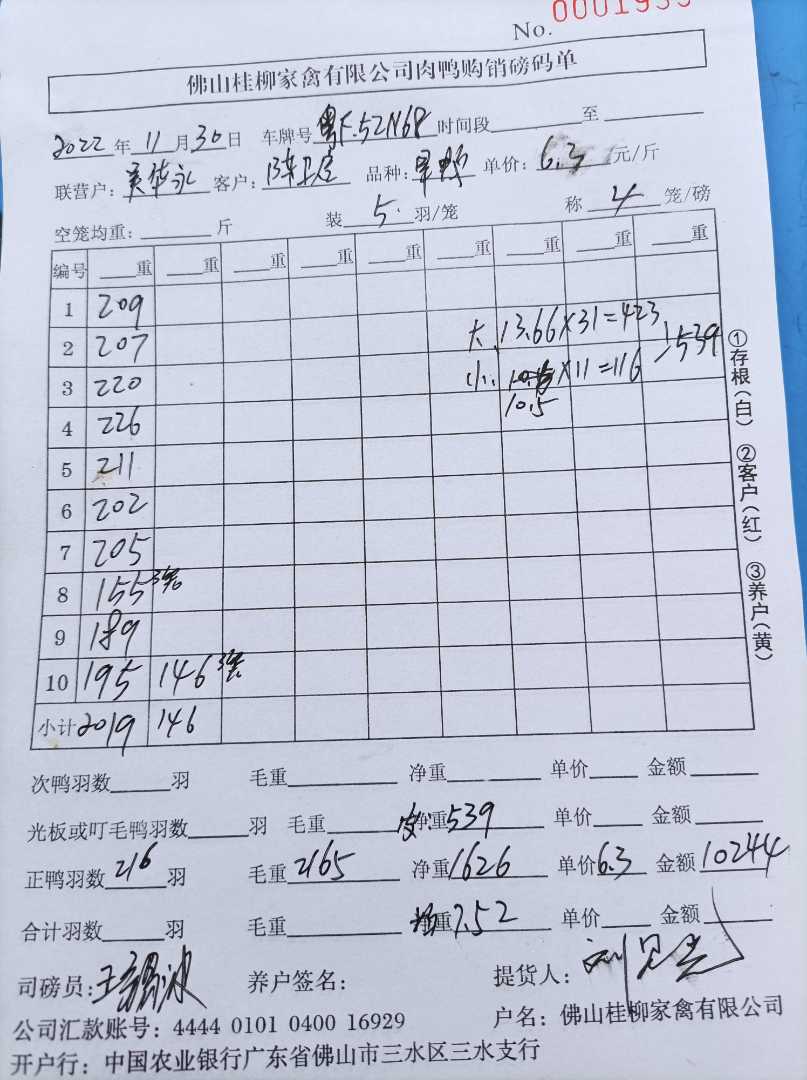 No. 0001955
佛山桂柳家禽有限公司肉鸭购销磅码单
2022年11月30日 车牌号粤F.52N68时间段 至
联营户: 华永 客户: 陈 品种: 单价: 6.3 元/斤
空笼均重: 斤 装 5 羽/笼 称 4 笼/磅
编号 重 重 重 重 重 重 重 重 重
1 209
2 207 大 13.66×31=423 539
3 220 小 ×11=116
4 226 10.5
5 211
6 202
7 205
8 155 3笼
9 189
10 195 146 3笼
小计 2019 146
①存根(白) ②客户(红) ③养户(黄)
次鸭羽数 羽 毛重 净重 单价 金额
光板或叮毛鸭羽数 羽 毛重 皮 净重 539 单价 金额
正鸭羽数 216 羽 毛重 2165 净重 1626 单价 6.3 金额 10244
合计羽数 羽 毛重 均 净重 7.52 单价 金额
司磅员: 王 养户签名: 提货人: 刘
公司汇款账号: 4444 0101 0400 16929 户名: 佛山桂柳家禽有限公司
开户行: 中国农业银行广东省佛山市三水区三水支行